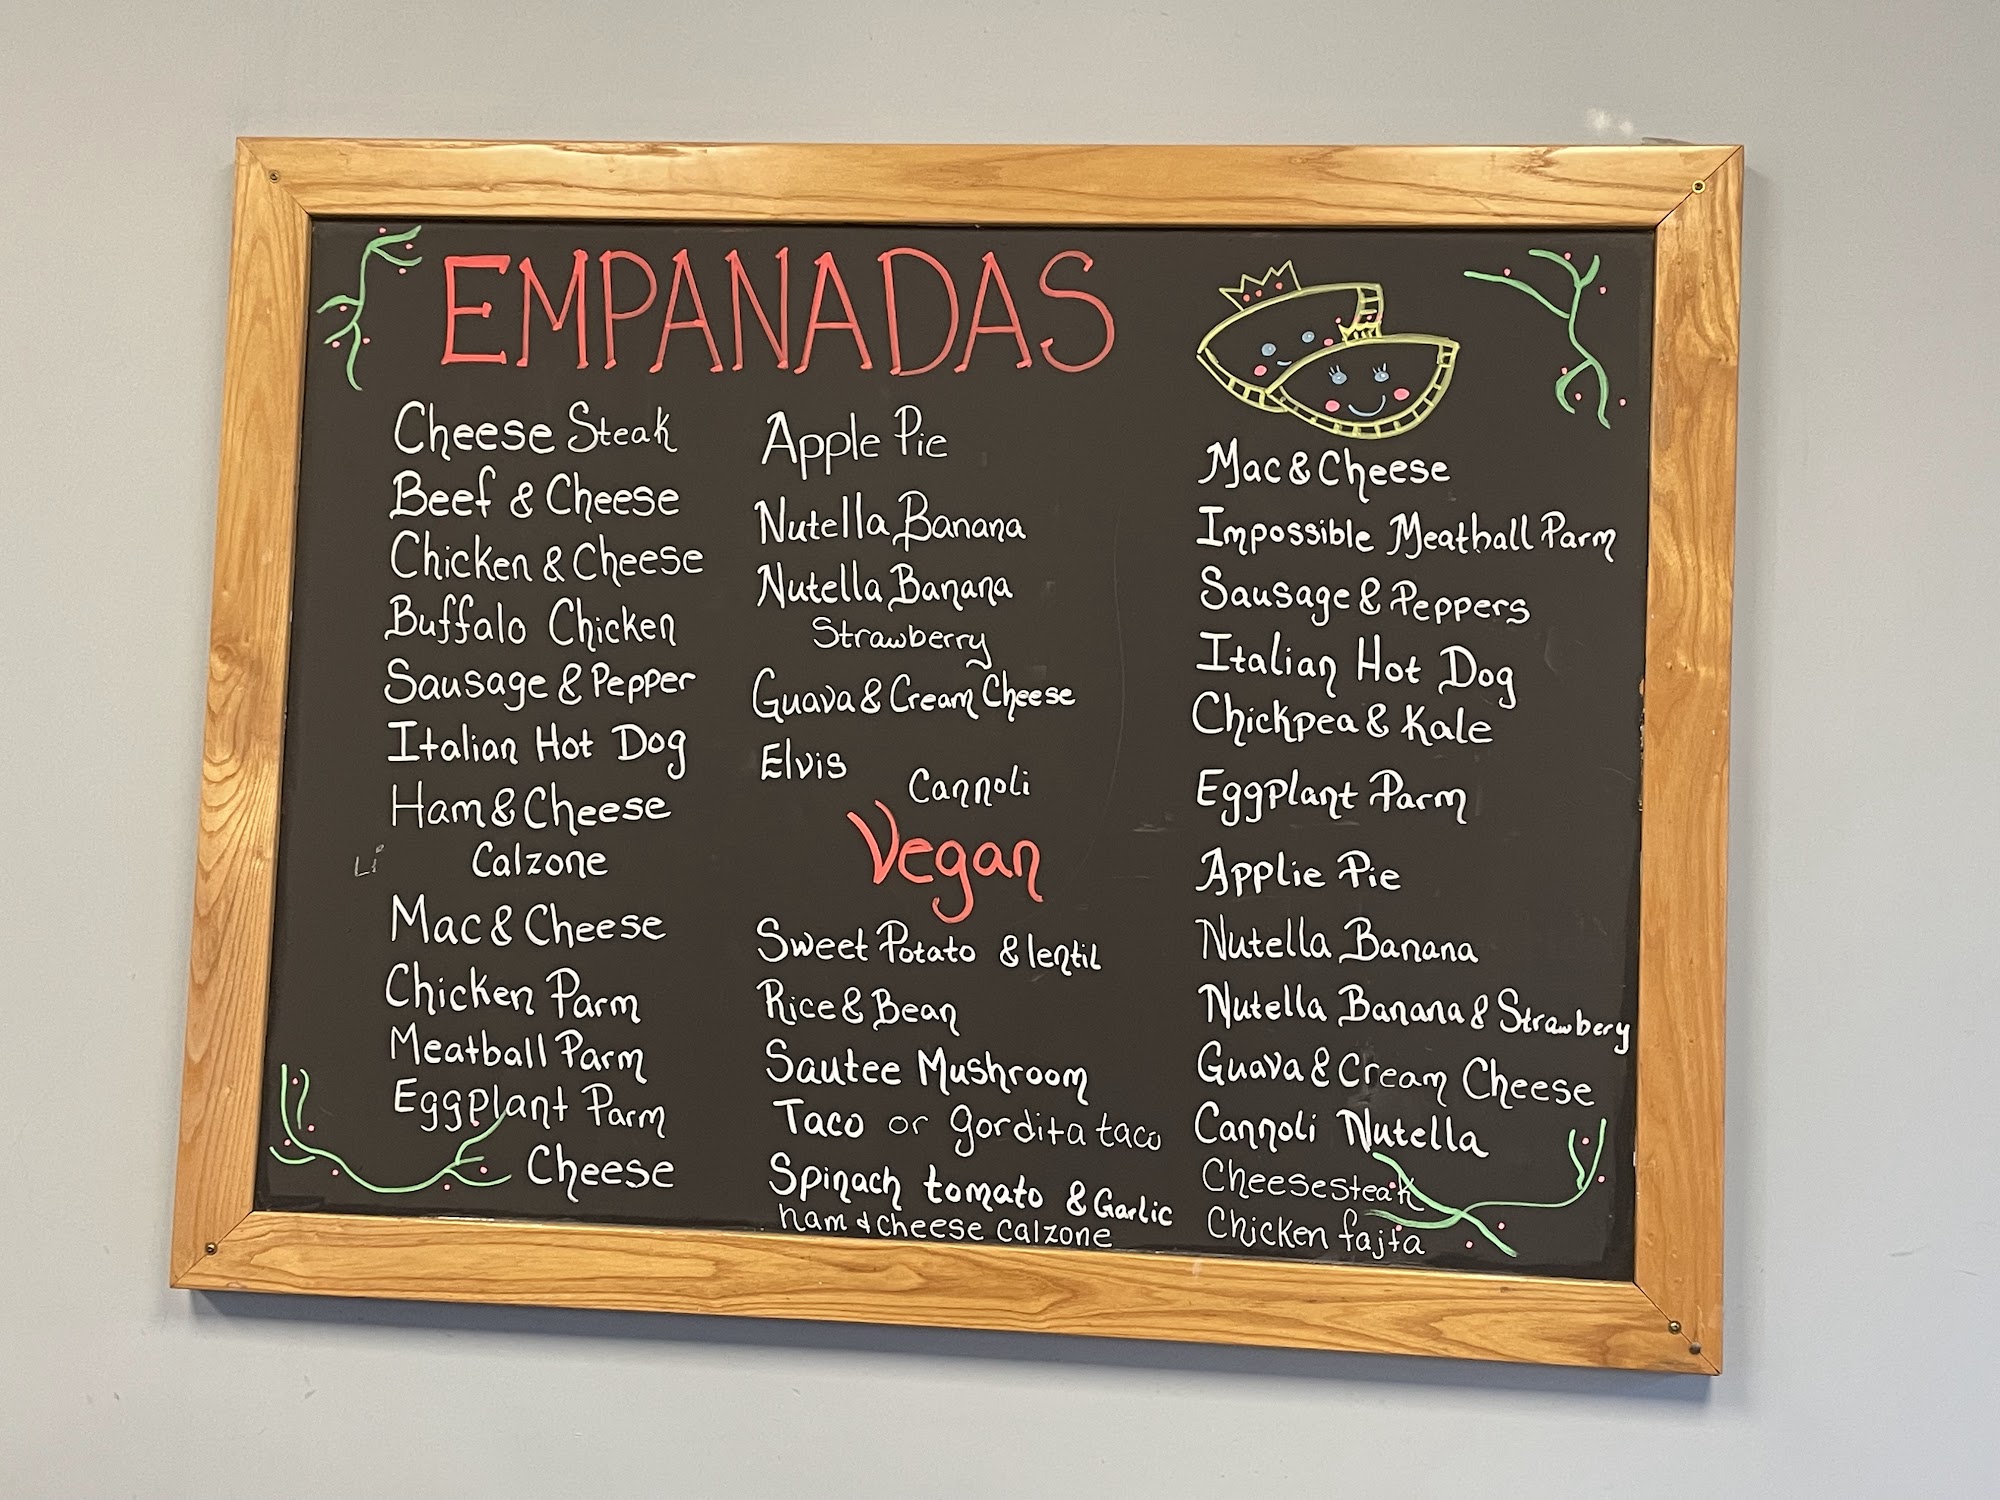 EMPANADAS
Cheese Steak
Beef & Cheese
Chicken & Cheese
Buffalo Chicken
Sausage & Pepper
Italian Hot Dog
Ham & Cheese
Calzone
Li
Mac & Cheese
Chicken Parm
Meatball Parm
Eggplant Parm
Cheese
Apple Pie
Nutella Banana
Nutella Banana
Strawberry
Guava & Cream Cheese
Elvis
Cannoli
Vegan
Sweet Potato & lentil
Rice & Bean
Sautee Mushroom
Taco or gordita taco
Spinach tomato & Garlic
ham & cheese calzone
Mac & Cheese
Impossible Meatball Parm
Sausage & Peppers
Italian Hot Dog
Chickpea & Kale
Eggplant Parm
Applie Pie
Nutella Banana
Nutella Banana & Strawbery
Guava & Cream Cheese
Cannoli Nutella
Cheesesteak
Chicken fajta